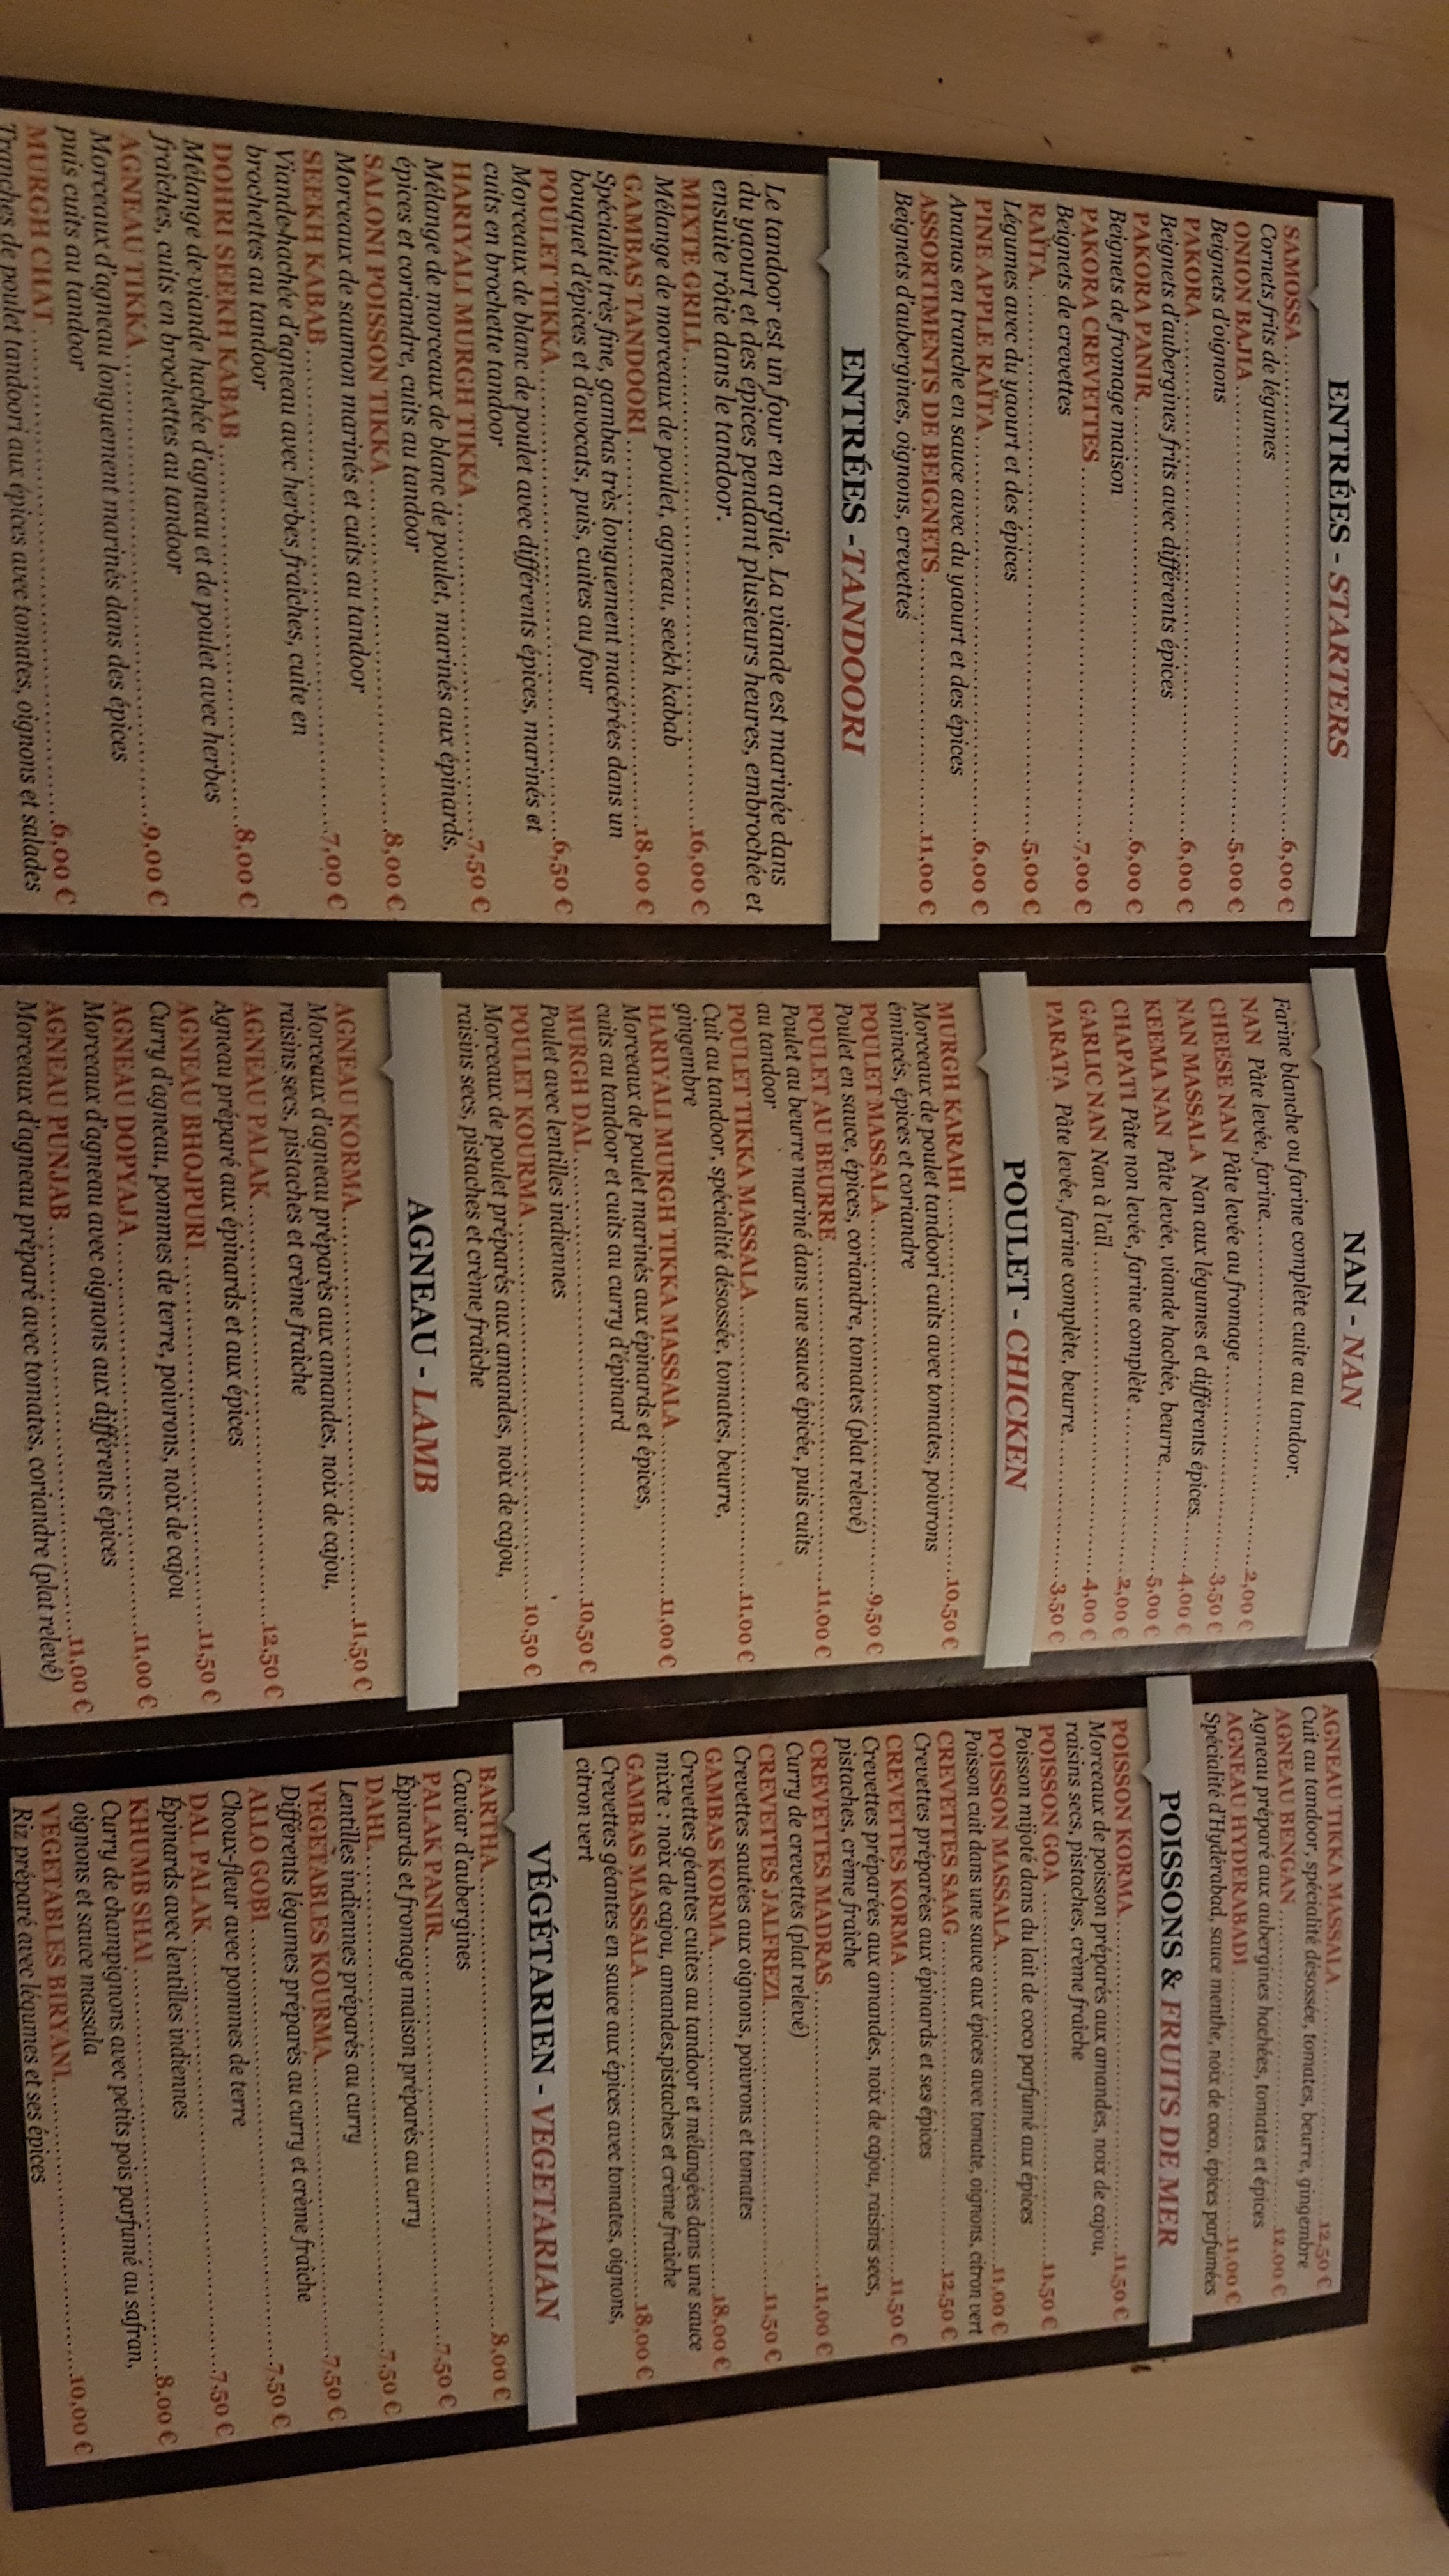 ENTRÉES - STARTERS
SAMOSSA ........ 6,00 €
Cornets frits de légumes
ONION BAJIA ........ 5,00 €
Beignets d'oignons
PAKORA ........ 6,00 €
Beignets d'aubergines frits avec différents épices
PAKORA PANIR ........ 6,00 €
Beignets de fromage maison
PAKORA CREVETTES ........ 7,00 €
Beignets de crevettes
RAÏTA ........ 5,00 €
Légumes avec du yaourt et des épices
PINE APPLE RAÏTA ........ 6,00 €
Ananas en tranche en sauce avec du yaourt et des épices
ASSORTIMENTS DE BEIGNETS ........ 11,00 €
Beignets d'aubergines, oignons, crevettes
ENTRÉES - TANDOORI
Le tandoor est un four en argile. La viande est marinée dans
du yaourt et des épices pendant plusieurs heures, embrochée et
ensuite rôtie dans le tandoor.
MIXTE GRILL ........ 16,00 €
Mélange de morceaux de poulet, agneau, seekh kabab
GAMBAS TANDOORI ........ 18,00 €
Spécialité très fine, gambas très longuement macérées dans un
bouquet d'épices et d'avocats, puis, cuites au four
POULET TIKKA ........ 6,50 €
Morceaux de blanc de poulet avec différents épices, marinés et
cuits en brochette tandoor
HARIYALI MURGH TIKKA ........ 7,50 €
Mélange de morceaux de blanc de poulet, marinés aux épinards,
épices et coriandre, cuits au tandoor
SALONI POISSON TIKKA ........ 8,00 €
Morceaux de saumon marinés et cuits au tandoor
SEEKH KABAB ........ 7,00 €
Viande hachée d'agneau avec herbes fraîches, cuite en
brochettes au tandoor
DOHRI SEEKH KABAB ........ 8,00 €
Mélange de viande haché d'agneau et de poulet avec herbes
fraîches, cuits en brochettes au tandoor
AGNEAU TIKKA ........ 9,00 €
Morceaux d'agneau longuement marinés dans des épices
puis cuits au tandoor
MURGH CHAT ........ 6,00 €
Tranches de poulet tandoori aux épices avec tomates, oignons et salades
NAN - NAN
Farine blanche ou farine complète cuite au tandoor.
NAN Pâte levée, farine ........ 2,00 €
CHEESE NAN Pâte levée au fromage ........ 3,50 €
NAN MASSALA Nan aux légumes et différents épices ........ 4,00 €
KEEMA NAN Pâte levée, viande hachée, beurre ........ 5,00 €
CHAPATI Pâte non levée, farine complète ........ 2,00 €
GARLIC NAN Nan à l'ail ........ 4,00 €
PARATA Pâte levée, farine complète, beurre ........ 3,50 €
POULET - CHICKEN
MURGH KARAHI ........ 10,50 €
Morceaux de poulet tandoori cuits avec tomates, poivrons
émincés, épices et coriandre
POULET MASSALA ........ 9,50 €
Poulet en sauce, épices, coriandre, tomates (plat relevé)
POULET AU BEURRE ........ 11,00 €
Poulet au beurre mariné dans une sauce épicée, puis cuits
au tandoor
POULET TIKKA MASSALA ........ 11,00 €
Cuit au tandoor, spécialité désossée, tomates, beurre,
gingembre
HARIYALI MURGH TIKKA MASSALA ........ 11,00 €
Morceaux de poulet marinés aux épinards et épices,
cuits au tandoor et cuits au curry d'épinard
MURGH DAL ........ 10,50 €
Poulet avec lentilles indiennes
POULET KOURMA ........ 10,50 €
Morceaux de poulet préparés aux amandes, noix de cajou,
raisins secs, pistaches et crème fraîche
AGNEAU - LAMB
AGNEAU KORMA ........ 11,50 €
Morceaux d'agneau préparés aux amandes, noix de cajou,
raisins secs, pistaches et crème fraîche
AGNEAU PALAK ........ 12,50 €
Agneau préparé aux épinards et aux épices
AGNEAU BHOJPURI ........ 11,50 €
Curry d'agneau, pommes de terre, poivrons, noix de cajou
AGNEAU DOPYAJA ........ 11,00 €
Morceaux d'agneau avec oignons aux différents épices
AGNEAU PUNJAB ........ 11,00 €
Morceaux d'agneau préparé avec tomates, coriandre (plat relevé)
AGNEAU TIKKA MASSALA ........ 12,50 €
Cuit au tandoor, spécialité désossée, tomates, beurre, gingembre
AGNEAU BENGAN ........ 12,00 €
Agneau préparé aux aubergines hachées, tomates et épices
AGNEAU HYDERABADI ........ 11,00 €
Spécialité d'Hyderabad, sauce menthe, noix de coco, épices parfumées
POISSONS & FRUITS DE MER
POISSON KORMA ........ 11,50 €
Morceaux de poisson préparés aux amandes, noix de cajou,
raisins secs, pistaches, crème fraîche
POISSON GOA ........ 11,50 €
Poisson mijoté dans du lait de coco parfumé aux épices
POISSON MASSALA ........ 11,00 €
Poisson cuit dans une sauce aux épices avec tomate, oignons, citron vert
CREVETTES SAAG ........ 12,50 €
Crevettes préparées aux épinards et ses épices
CREVETTES KORMA ........ 11,50 €
Crevettes préparées aux amandes, noix de cajou, raisins secs,
pistaches, crème fraîche
CREVETTES MADRAS ........ 11,00 €
Curry de crevettes (plat relevé)
CREVETTES JALFREZI ........ 11,50 €
Crevettes sautées aux oignons, poivrons et tomates
GAMBAS KORMA ........ 18,00 €
Crevettes géantes cuites au tandoor et mélangées dans une sauce
mixte : noix de cajou, amandes,pistaches et crème fraîche
GAMBAS MASSALA ........ 18,00 €
Crevettes géantes en sauce aux épices avec tomates, oignons,
citron vert
VÉGÉTARIEN - VEGETARIAN
BARTHA ........ 8,00 €
Caviar d'aubergines
PALAK PANIR ........ 7,50 €
Épinards et fromage maison préparés au curry
DAHL ........ 7,50 €
Lentilles indiennes préparés au curry
VEGETABLES KOURMA ........ 7,50 €
Différents légumes préparés au curry et crème fraîche
ALLO GOBI ........ 7,50 €
Choux-fleur avec pommes de terre
DAL PALAK ........ 7,50 €
Épinards avec lentilles indiennes
KHUMB SHAI ........ 8,00 €
Curry de champignons avec petits pois parfumé au safran,
oignons et sauce massala
VEGETABLES BIRYANI ........ 10,00 €
Riz préparé avec légumes et ses épices